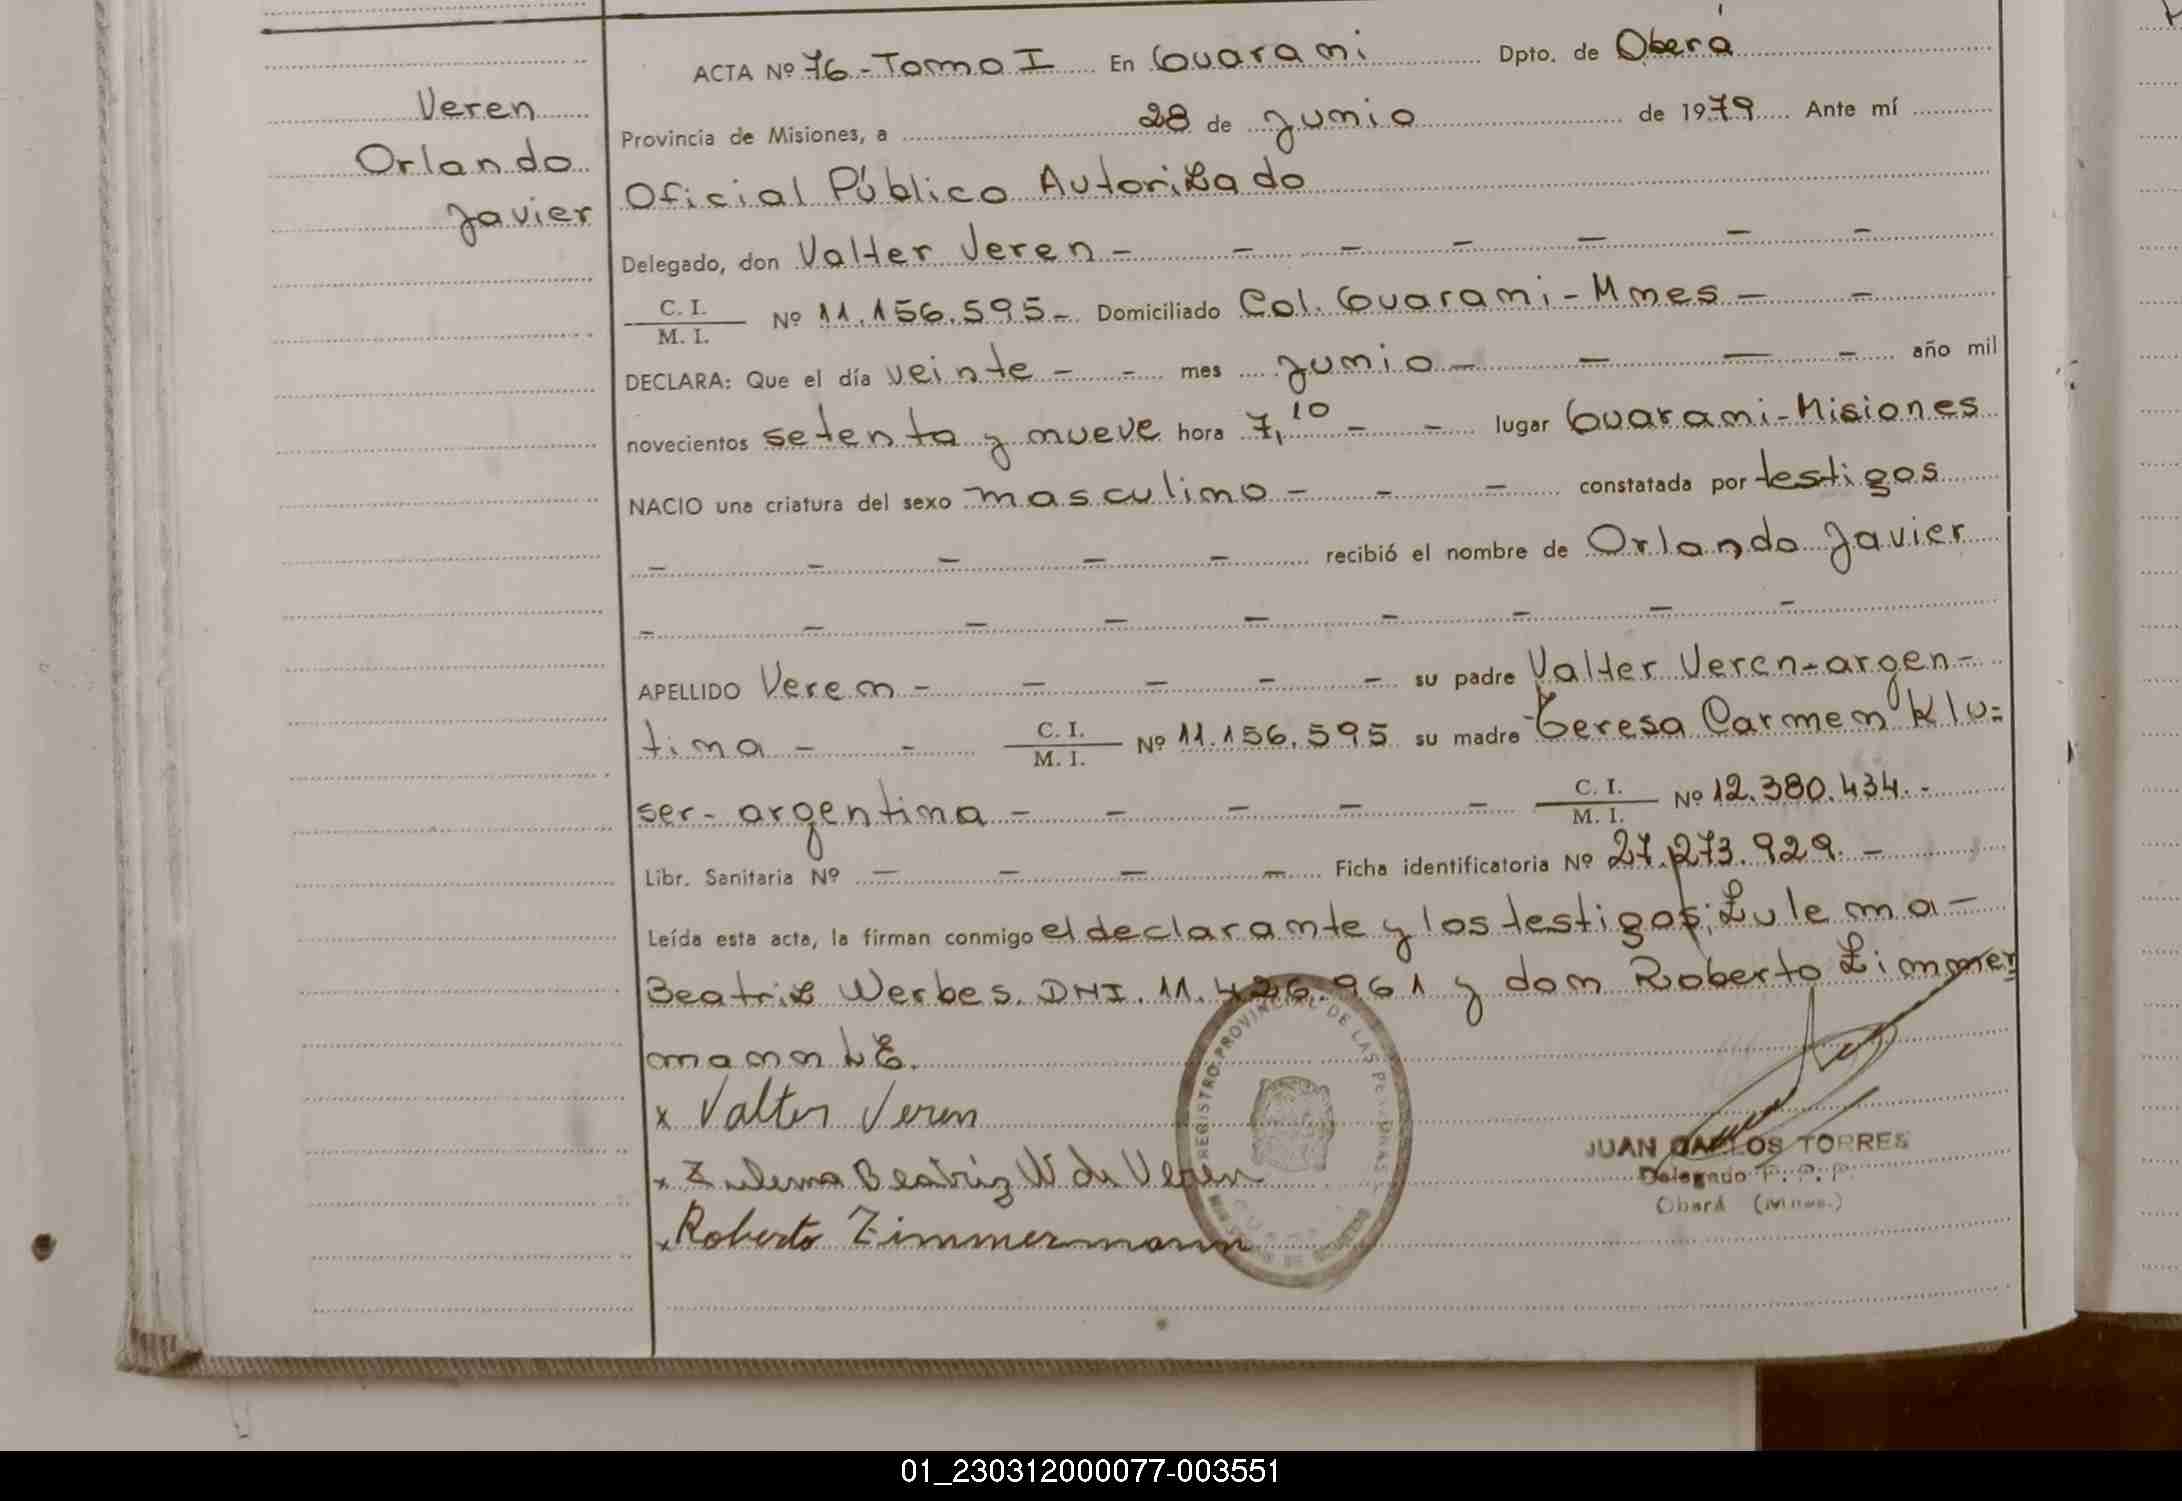 Veren
Orlando
Javier
ACTA Nº 76 - Tomo I En Guarami Dpto. de Oberá
Provincia de Misiones, a 28 de Junio de 1979 Ante mí
Oficial Público Autorizado
Delegado, don Valter Veren -
C. I.
M. I. Nº 11.156.595 - Domiciliado Col. Guarami - Mnes -
DECLARA: Que el día veinte - mes Junio - año mil
novecientos setenta y nueve hora 7,10 - lugar Guarami - Misiones
NACIO una criatura del sexo masculino - constatada por testigos
recibió el nombre de Orlando Javier
APELLIDO Veren - su padre Valter Veren - argen-
tina - C. I.
M. I. Nº 11.156.595 su madre Teresa Carmen Klu=
ser - argentina - C. I.
M. I. Nº 12.380.434. -
Libr. Sanitaria Nº - Ficha identificatoria Nº 27.273.929. -
Leída esta acta, la firman conmigo el declarante y los testigos; Zulema -
Beatriz Werbes. DNI. 11.426.961 y don Roberto Zimmer
mann LE.
x Valter Veren
x Zulema Beatriz W de Veren
x Roberto Zimmermann
REGISTRO PROVINCIAL DE LAS PERSONAS
JUAN CARLOS TORRES
Delegado R. P. P.
Oberá (Mnes.)
01_230312000077-003551